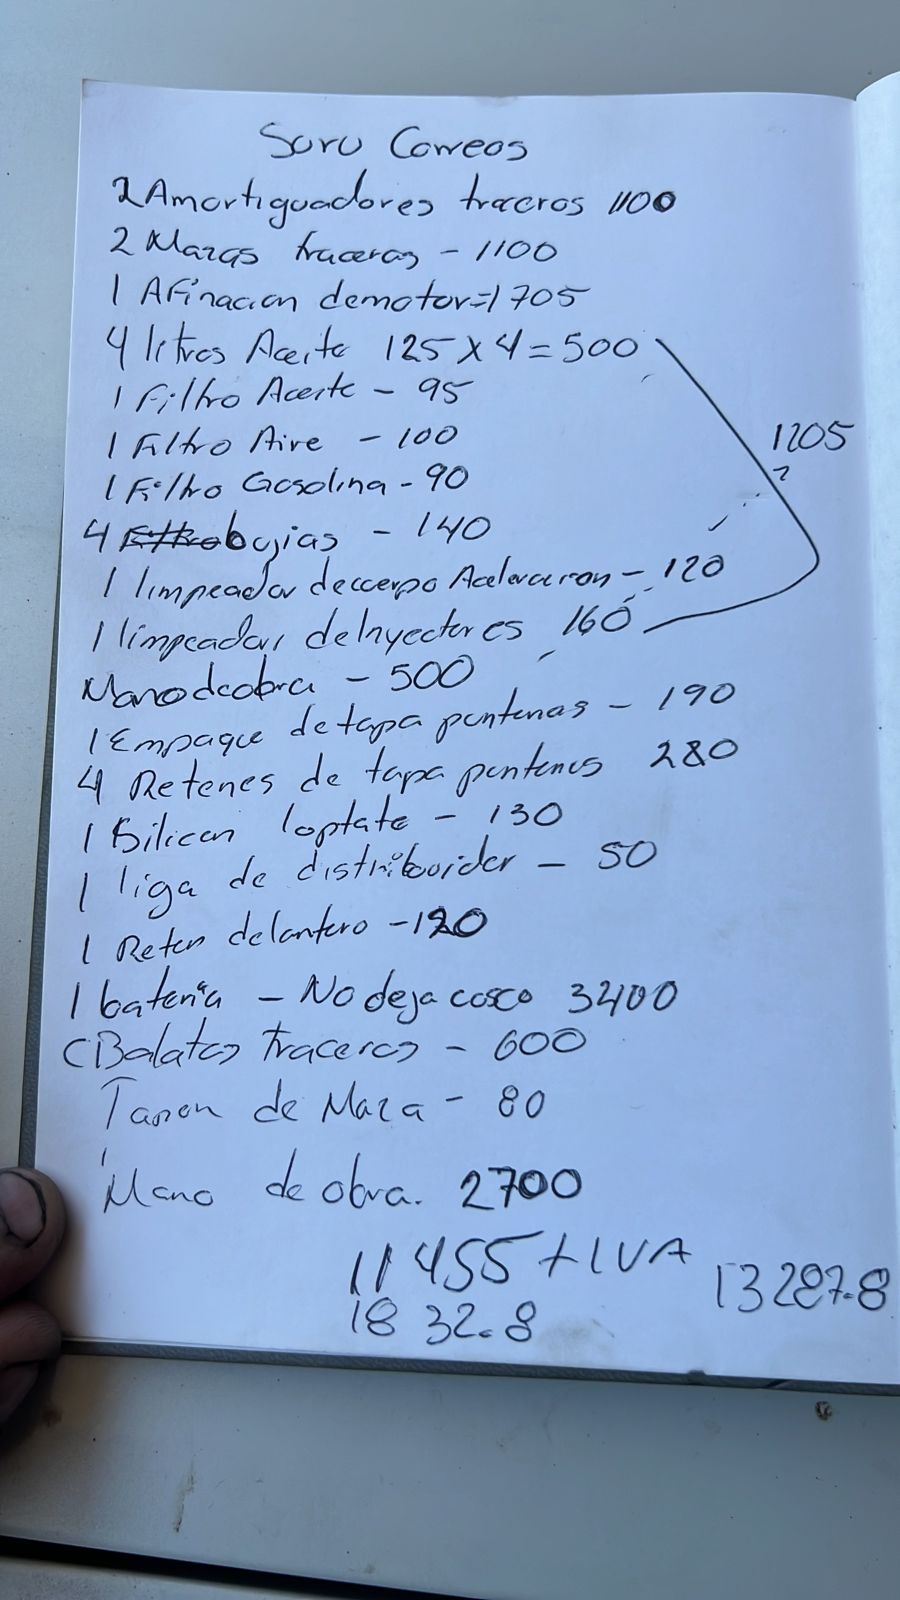 Suru Correos
2 Amortiguadores traceros 1100
2 Mazas traceras - 1100
1 Afinacion demotor=1705
4 litros Aceite 125 x 4 = 500
1 Filtro Aceite - 95
1 Filtro Aire - 100
1205
1 Filtro Gasolina - 90
4 bujias - 140
1 limpeador deccerpo Aceleracion - 120
1 limpeador deInyectores 160
Manodeobra - 500
1 Empaque de tapa puntenas - 190
4 Retenes de tapa puntenas 280
1 Silicon loptate - 130
1 liga de distribuider - 50
1 Reten delantero - 120
1 bateria - No deja casco 3400
Balatas traceras - 600
de Maza - 80
Mano de obra. 2700
11455 + IVA
13287.8
1832.8